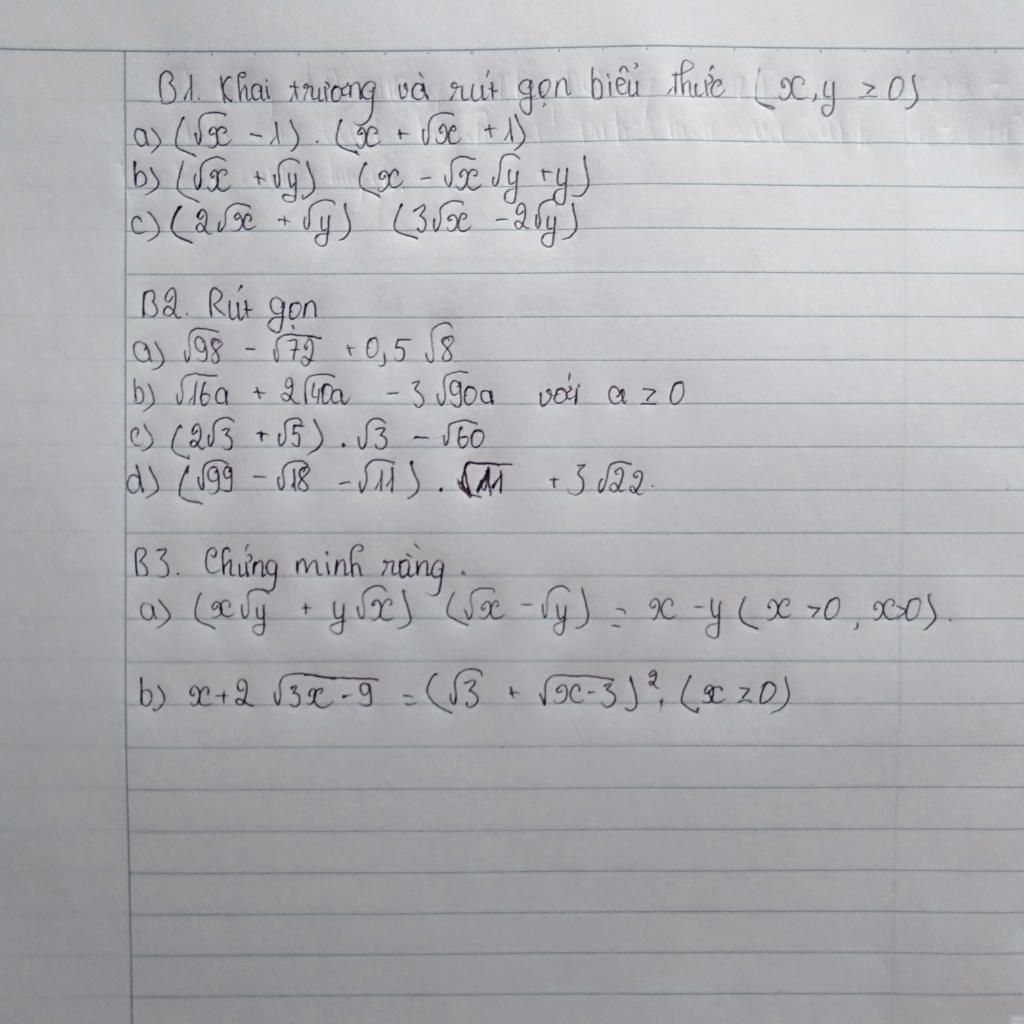 B1. Khai trương và rút gọn biểu thức (x, y ≥ 0)
a) (√x - 1) . (x + √x + 1)
b) (√x + √y) (x - √x √y + y)
c) (2√x + √y) (3√x - 2√y)
B2. Rút gọn
a) √98 - √72 + 0,5 √8
b) √16a + 2√40a - 3√90a với a ≥ 0
c) (2√3 + √5) . √3 - √60
d) (√99 - √18 - √11) . √11 + 3√22.
B3. Chứng minh rằng.
a) (x√y + y√x) (√x - √y) = x - y (x >0, x>0).
b) x+2 √3x-9 = (√3 + √x-3)². (x ≥ 0)